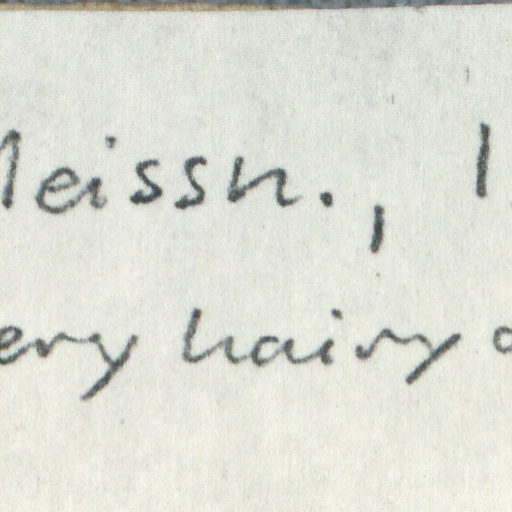 Meissn., 1
ery hairy